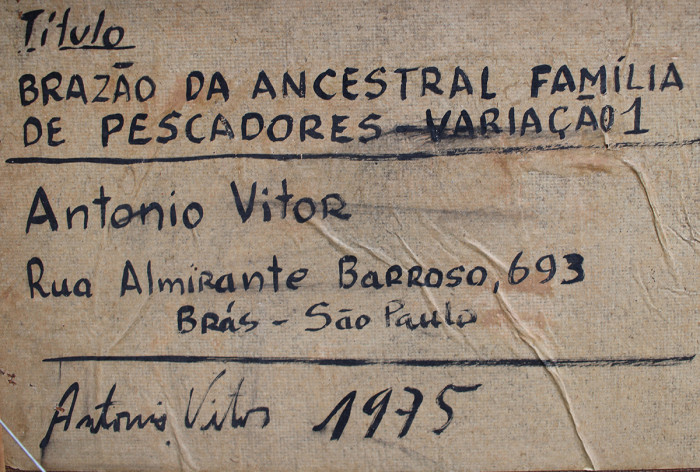 Título
BRAZÃO DA ANCESTRAL FAMÍLIA
DE PESCADORES - VARIAÇÃO 1
Antonio Vitor
Rua Almirante Barroso, 693
Brás - São Paulo
Antonio Vitor 1975